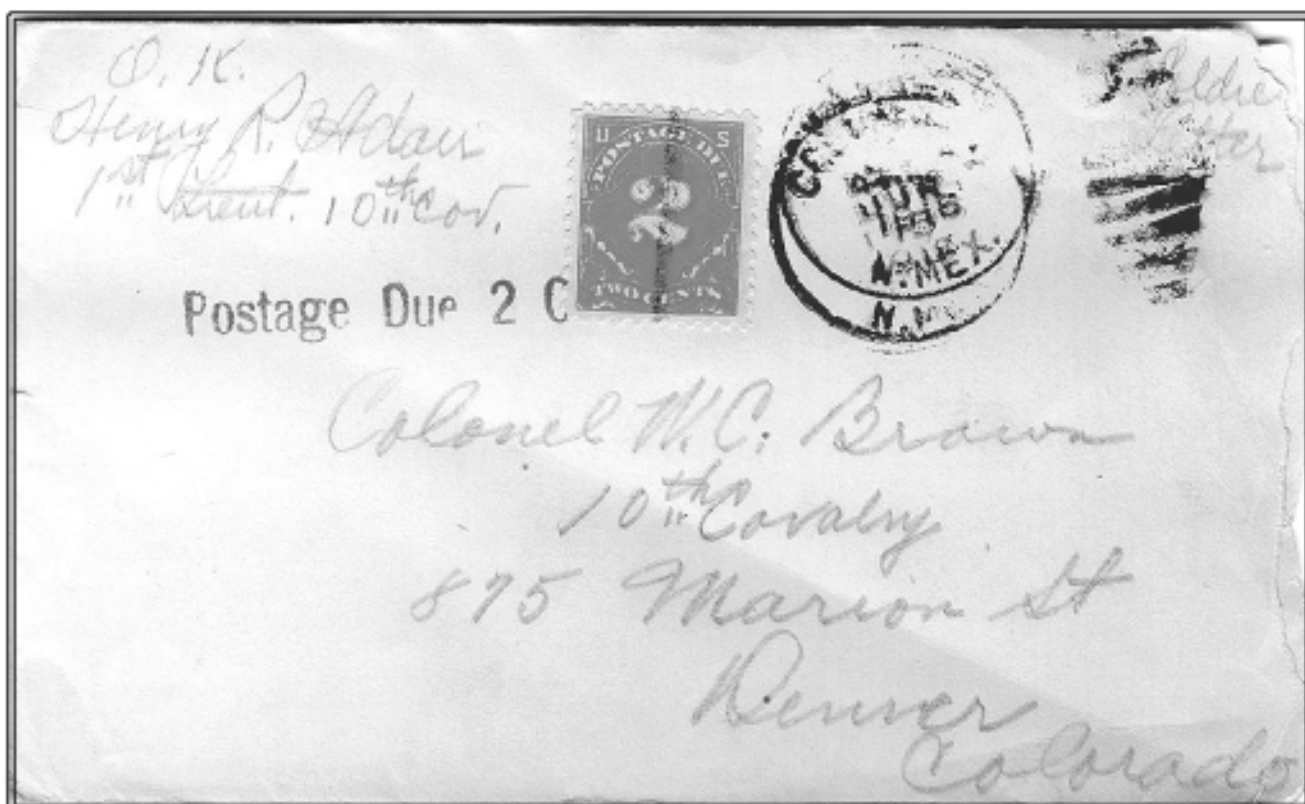 O. K.
Henry R. Adair
1st Lieut. 10th Cav.
U S
POSTAGE DUE
2
TWO CENTS
Postage Due 2 C
JUN
N. MEX.
Soldie
Letter
Colonel W. C. Brown
10th Cavalry
875 Marion St
Denver
Colorado